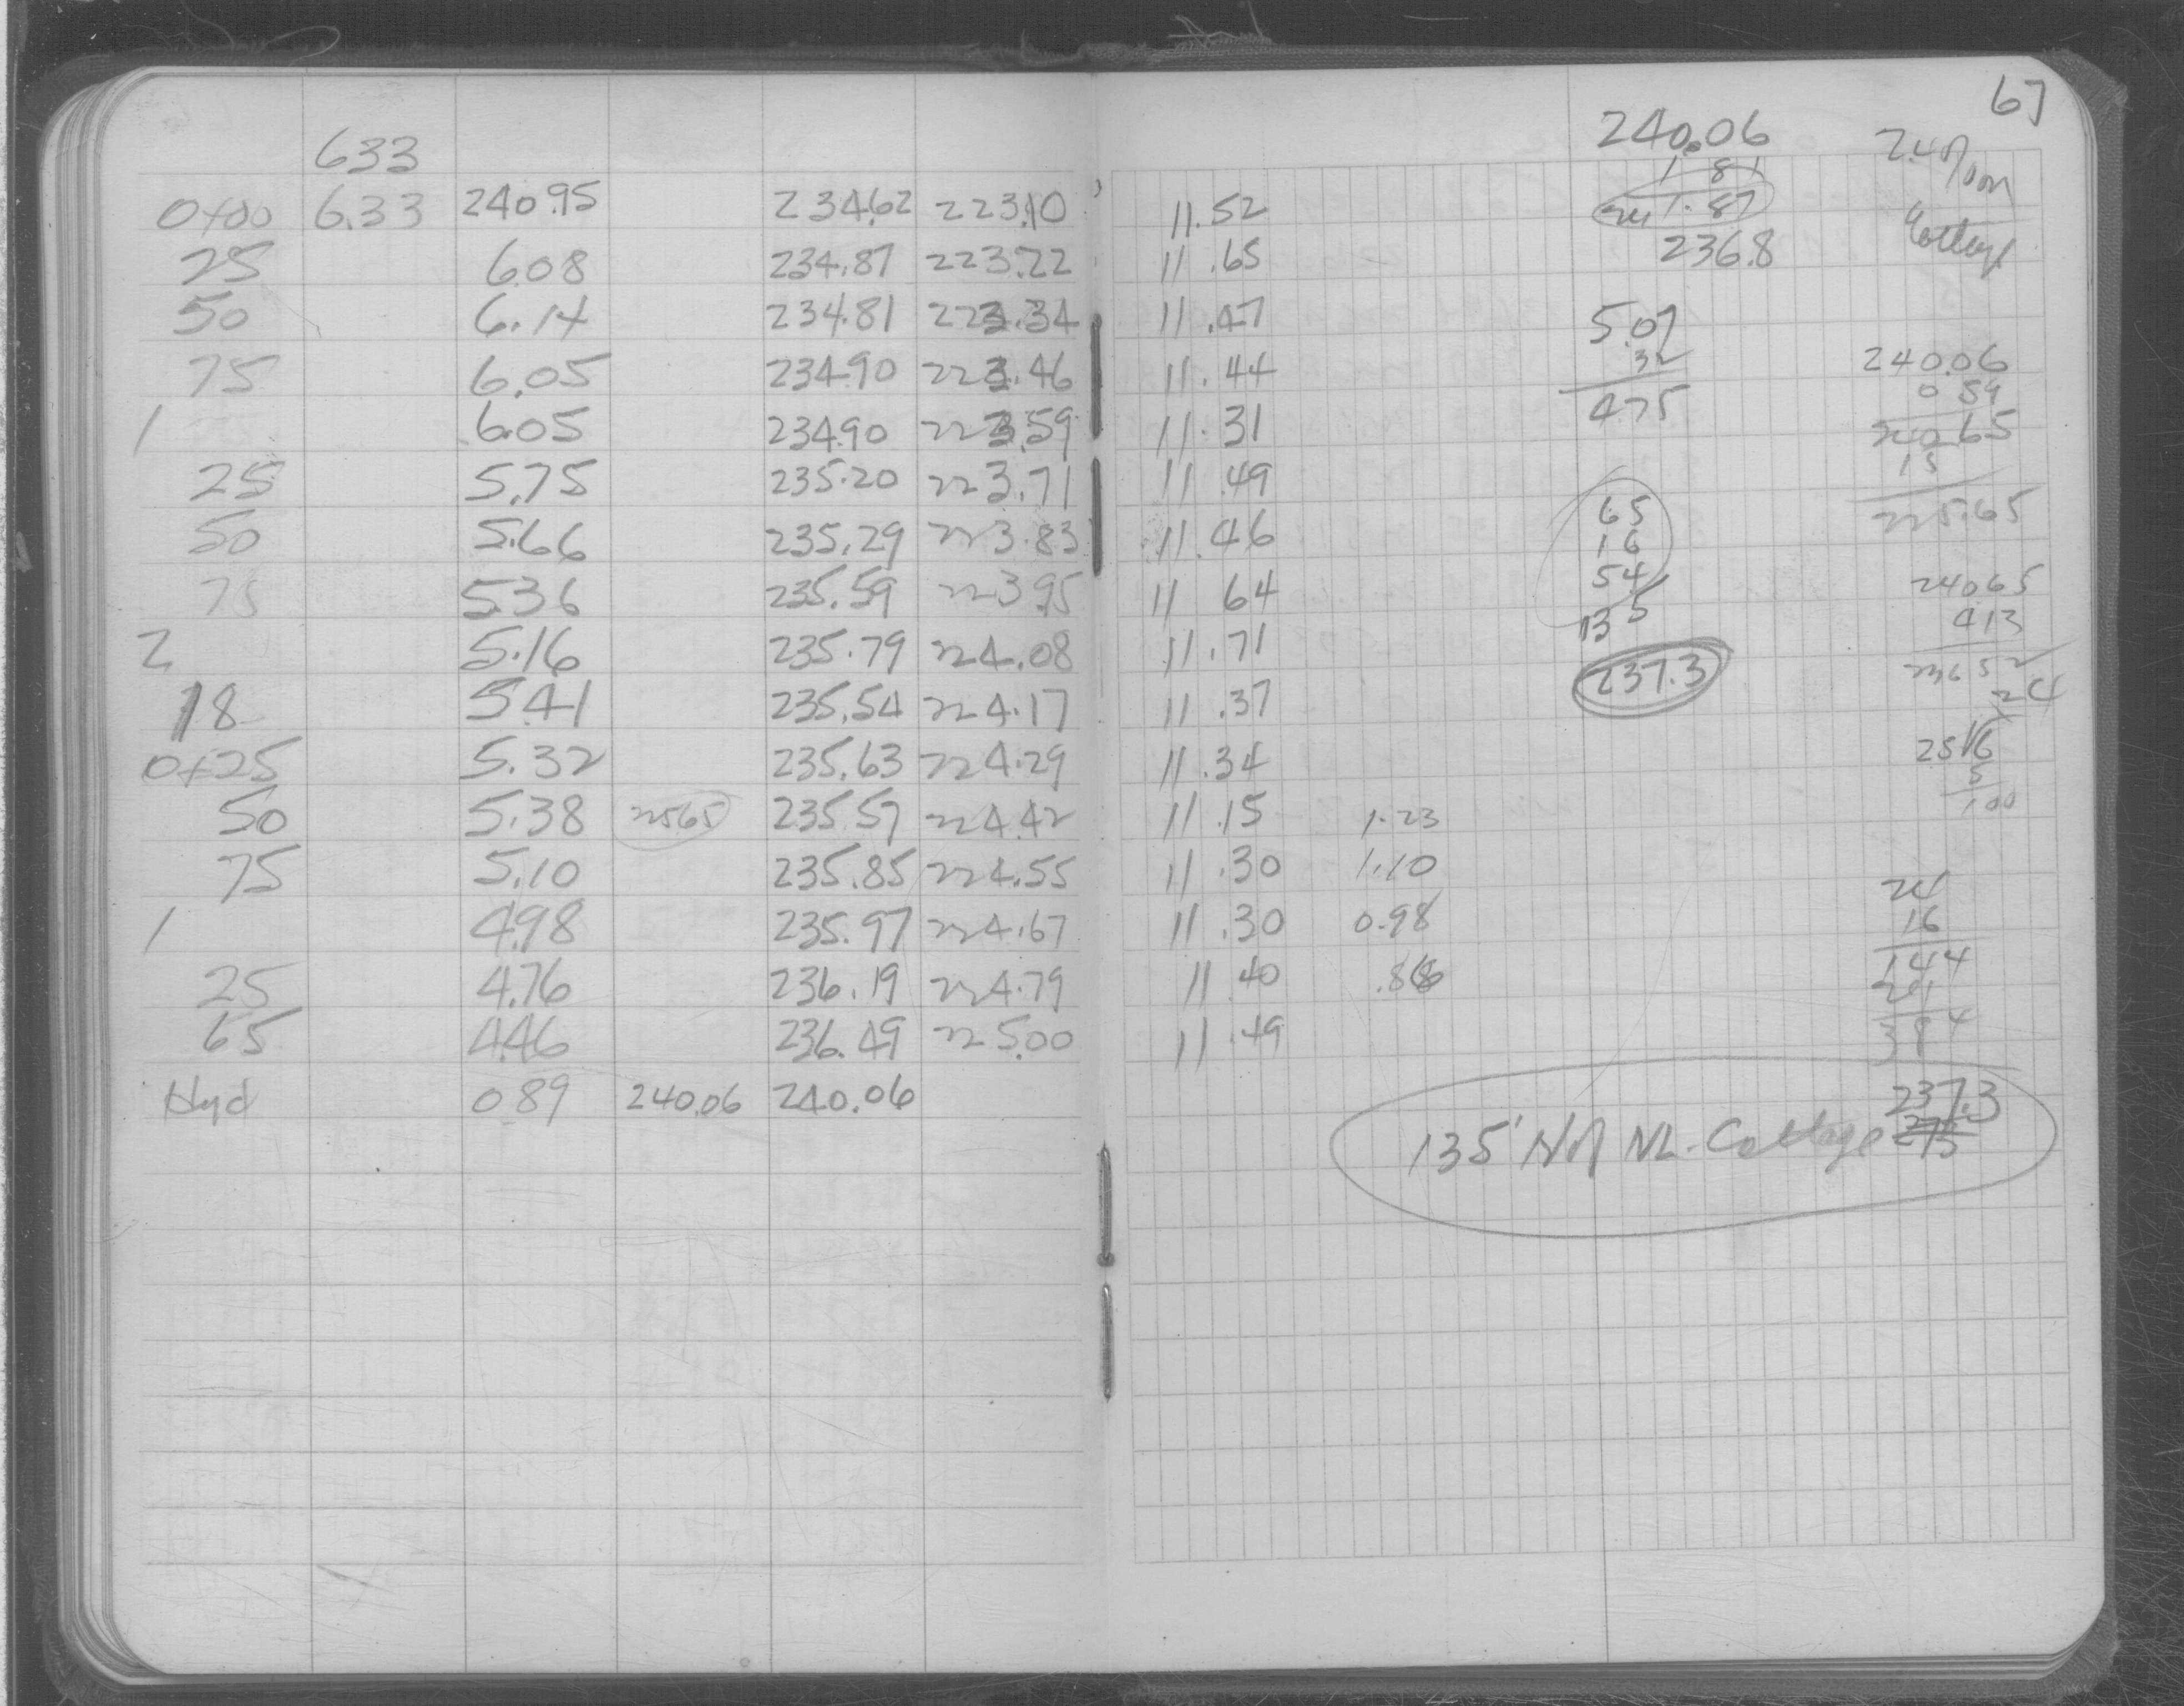 67
633
0+00 6.33 240.95 234.62 223.10 11.52
25 6.08 234.87 223.22 11.65
50 6.14 234.81 223.34 11.47
75 6.05 234.90 223.46 11.44
1 6.05 234.90 223.59 11.31
25 5.75 235.20 223.71 11.49
50 5.66 235.29 223.83 11.46
75 5.36 235.59 223.95 11 64
2 5.16 235.79 224.08 11.71
18 5.41 235.54 224.17 11.37
0+25 5.32 235.63 224.29 11.34
50 5.38 22565 235.57 224.42 11.15 1.23
75 5.10 235.85 224.55 11.30 1.10
1 4.98 235.97 224.67 11.30 0.98
25 4.76 236.19 224.79 11.40
65 4.46 236.49 225.00 11.49
Hyd 0.89 240.06 240.06
240.06
1 81
241.87
236.8
5.07
32
475
65
16
54
135
237.3
Cottage
240.06
0 59
240.65
15
225.65
240 65
413
236 52
24
16
144
24
384
237.3
135' N of NL. Cottage